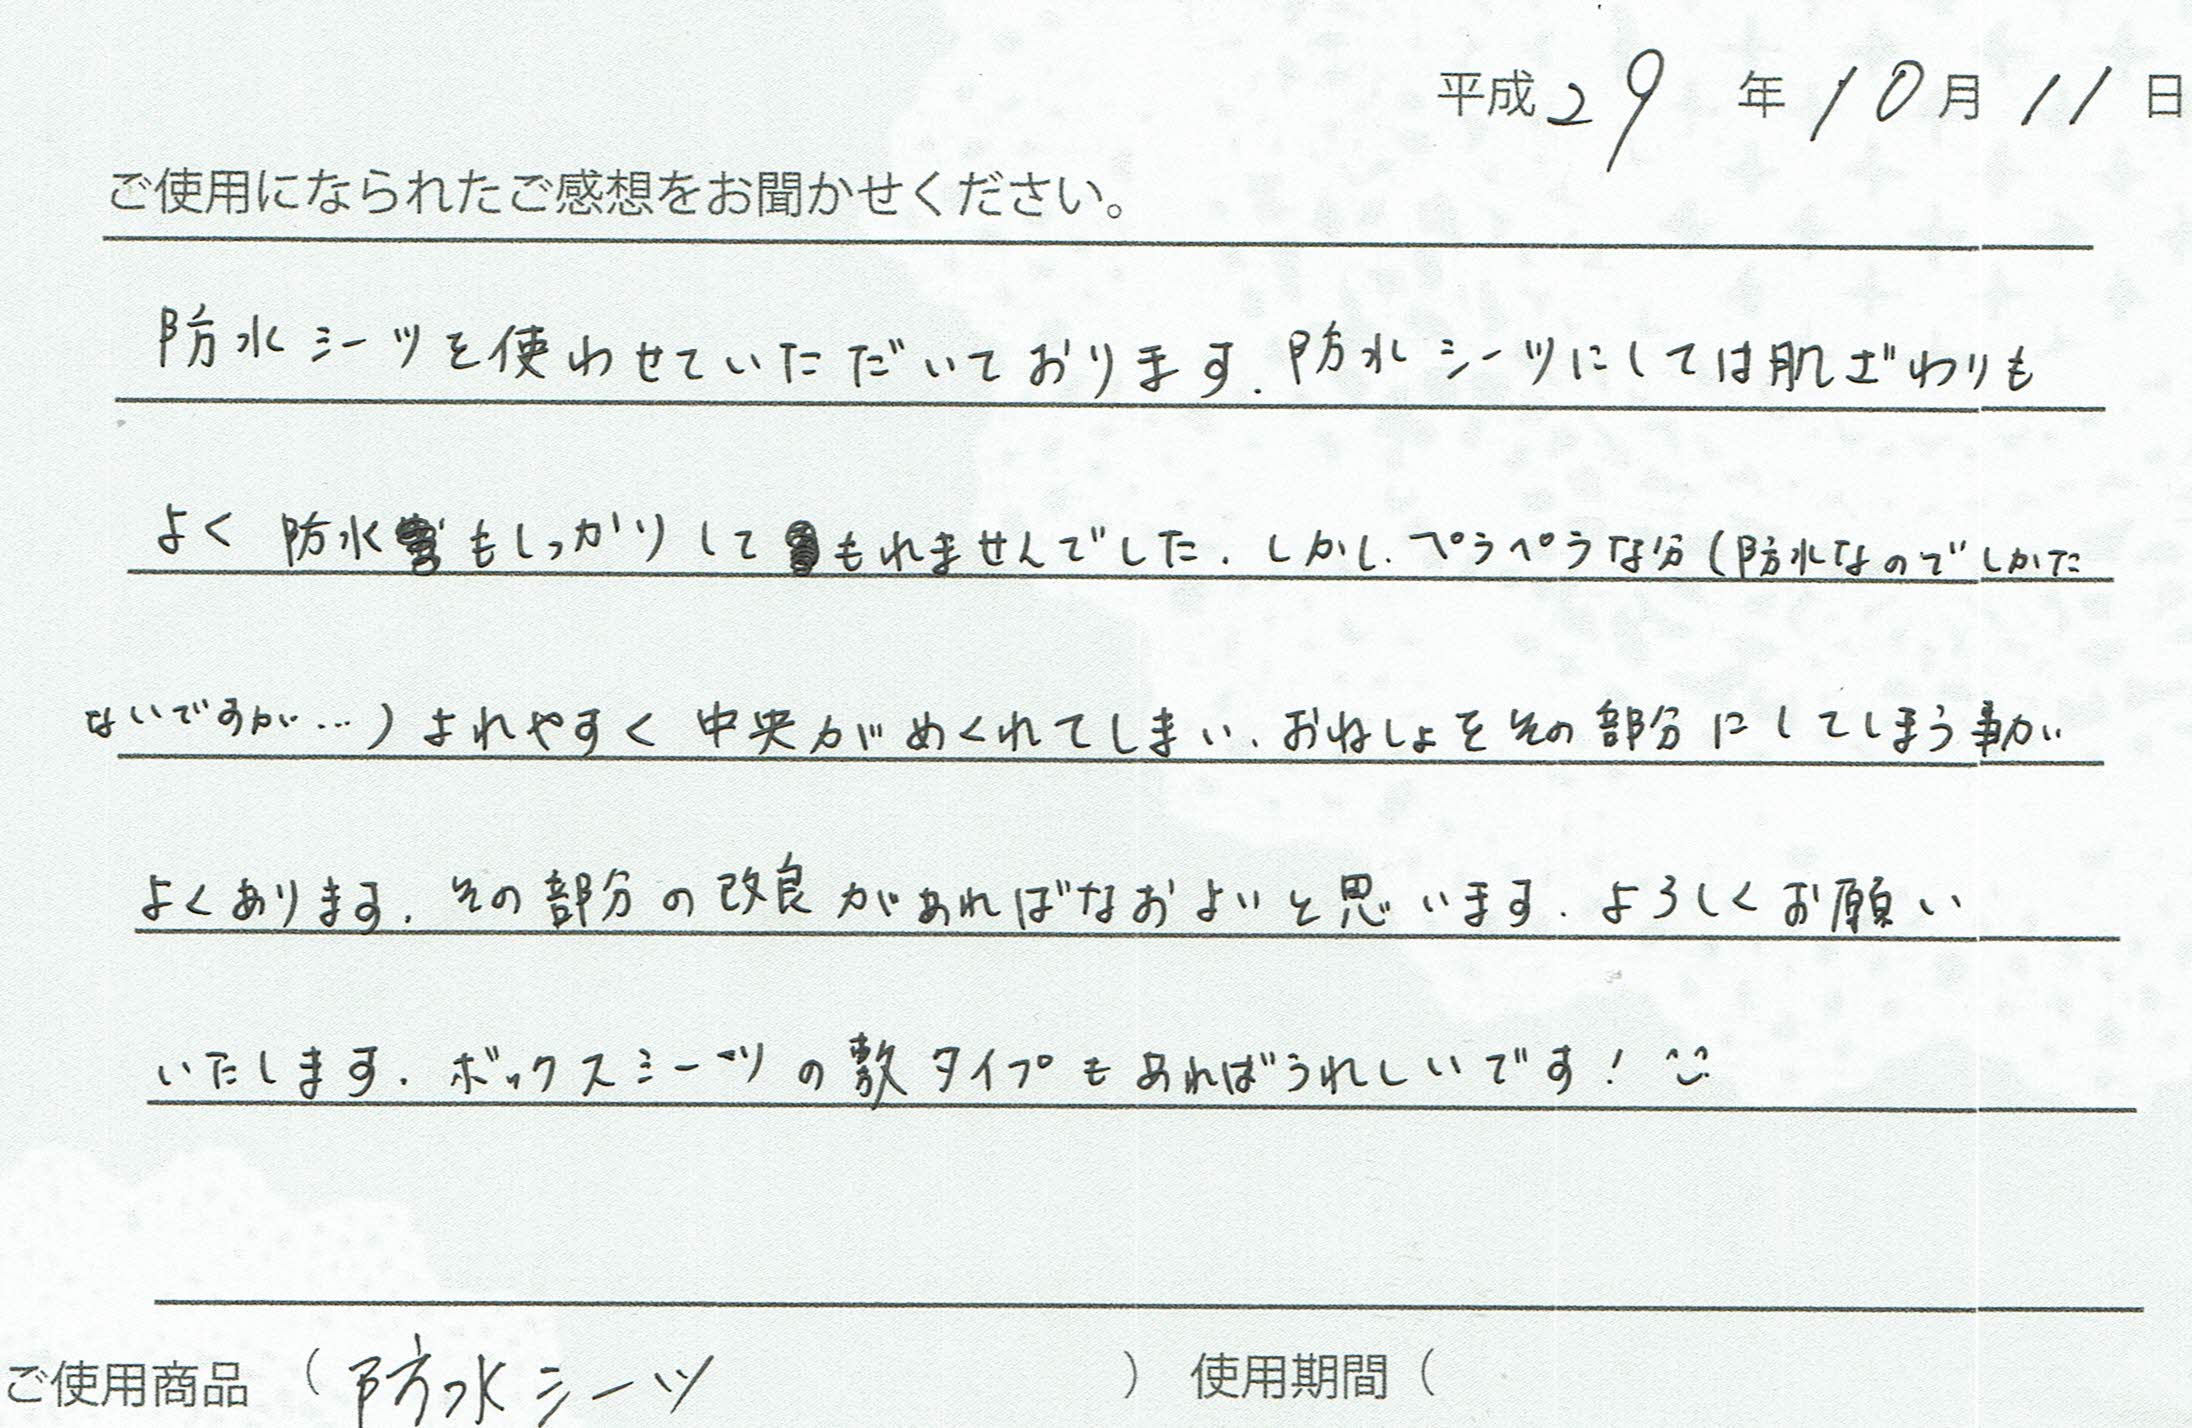 平成29年10月11日
ご使用になられたご感想をお聞かせください。
防水シーツを使わせていただいております。防水シーツにしては肌ざわりも
よく 防水もしっかりしてもれませんでした。しかし、ペラペラな分(防水なのでしかた
ないですが…)よれやすく 中央がめくれてしまい、おねしょをその部分にしてしまう事が
よくあります。その部分の改良があればなおよいと思います。よろしくお願い
いたします。ボックスシーツの敷タイプもあればうれしいです!
ご使用商品 (防水シーツ) 使用期間 (